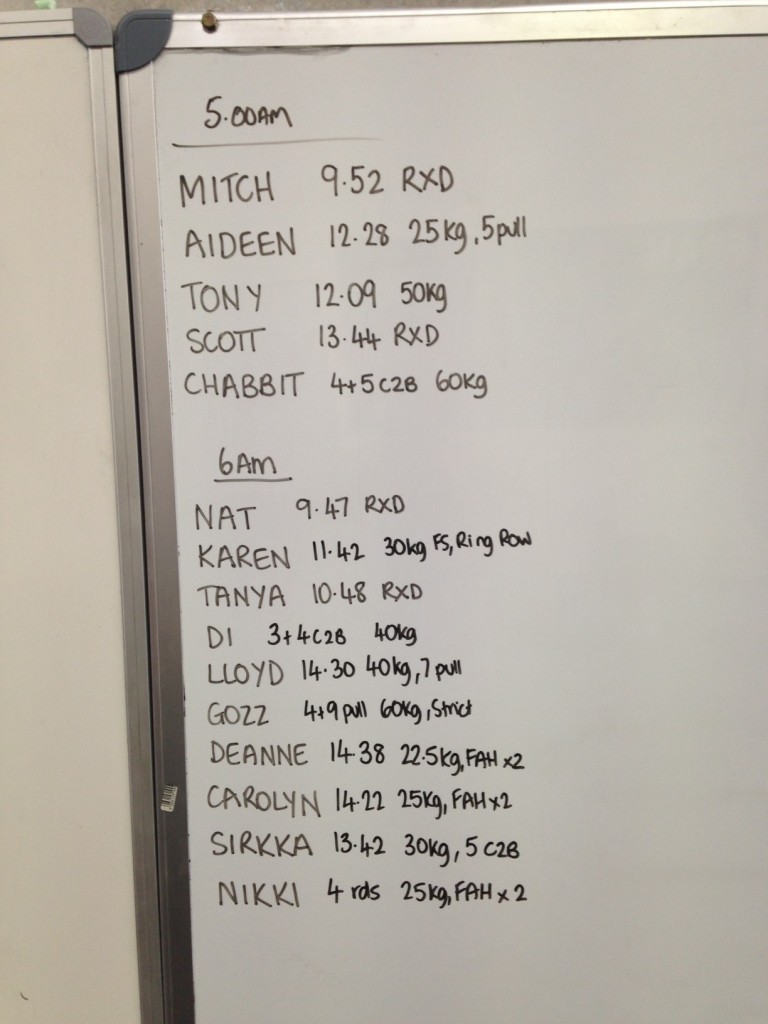 5.00AM
MITCH 9.52 RXD
AIDEEN 12.28 25kg, 5pull
TONY 12.09 50kg
SCOTT 13.44 RXD
CHABBIT 4+5C2B 60kg
6AM
NAT 9.47 RXD
KAREN 11.42 30kg FS, Ring Row
TANYA 10.48 RXD
DI 3+4C2B 40kg
LLOYD 14.30 40kg, 7 pull
GOZZ 4+9 pull 60kg, Strict
DEANNE 14.38 22.5kg, FAH x2
CAROLYN 14.22 25kg, FAH x2
SIRKKA 13.42 30kg, 5 C2B
NIKKI 4 rds 25kg, FAH x 2